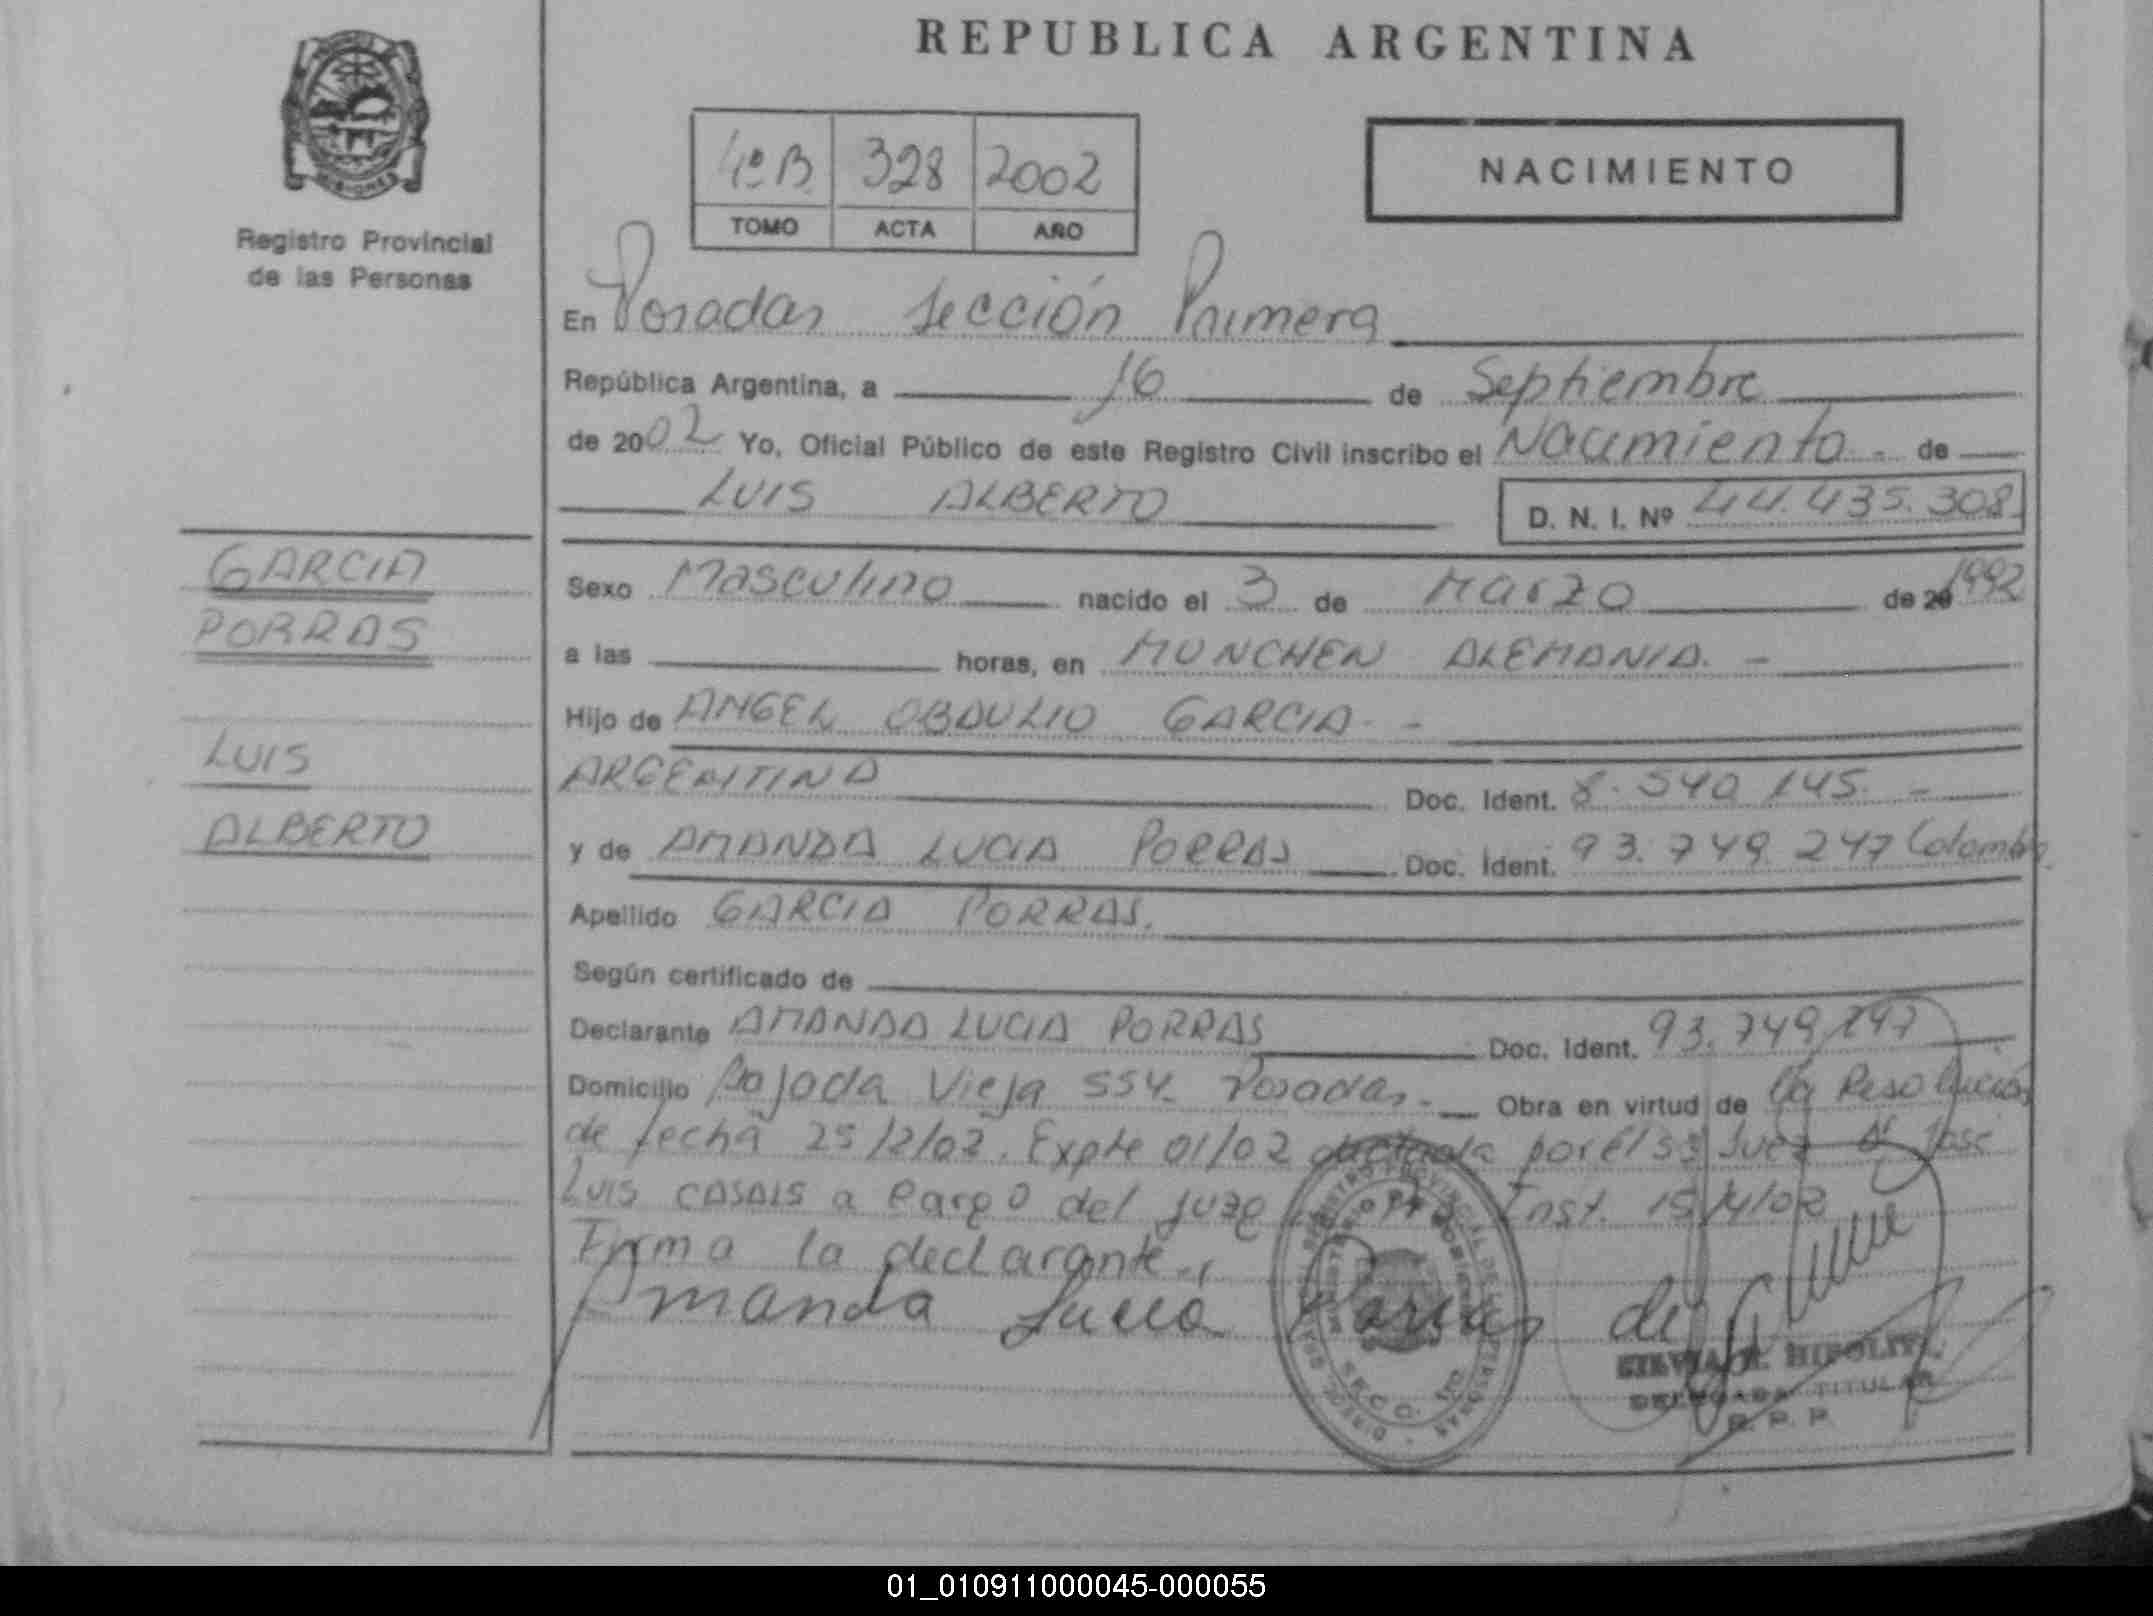 REPUBLICA ARGENTINA
MISIONES
Registro Provincial
de las Personas
4º B 328 2002
TOMO ACTA AÑO
NACIMIENTO
En Posadas Sección Primera
República Argentina, a 16 de Septiembre
de 2002 Yo, Oficial Público de este Registro Civil inscribo el Nacimiento - de
LUIS ALBERTO D. N. I. Nº 44.435.308
GARCIA
PORRAS
LUIS
ALBERTO
Sexo Masculino nacido el 3 de Marzo de 20 1992
a las horas, en MUNCHEN ALEMANIA. -
Hijo de ANGEL OBDULIO GARCIA - -
ARGENTINA Doc. Ident. 8.540.145. -
y de AMANDA LUCIA PORRAS Doc. Ident. 93.749.247 Colomb
Apellido GARCIA PORRAS.
Según certificado de
Declarante AMANDA LUCIA PORRAS Doc. Ident. 93.749.247
Domicilio Bajada Vieja 554 Posadas - Obra en virtud de la Resolución
de fecha 25/2/02. Expte 01/02 dictada por el Juez Dr José
Luis CASALS a cargo del Juzg Inst. 15/4/02
Firma la declarante.
Amanda Lucia Porras de
SECC. 1ra
SILVIA HIPOLIT
DELEGADA TITULAR
R. P. P.
01_010911000045-000055